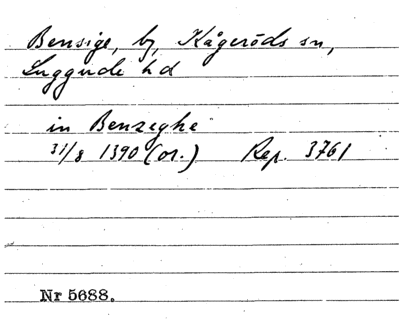 Bensige, by, Kågeröds sn,
Luggude hd
in Benzeghe
31/8 1390 (or.) Rep. 3761
Nr 5688.